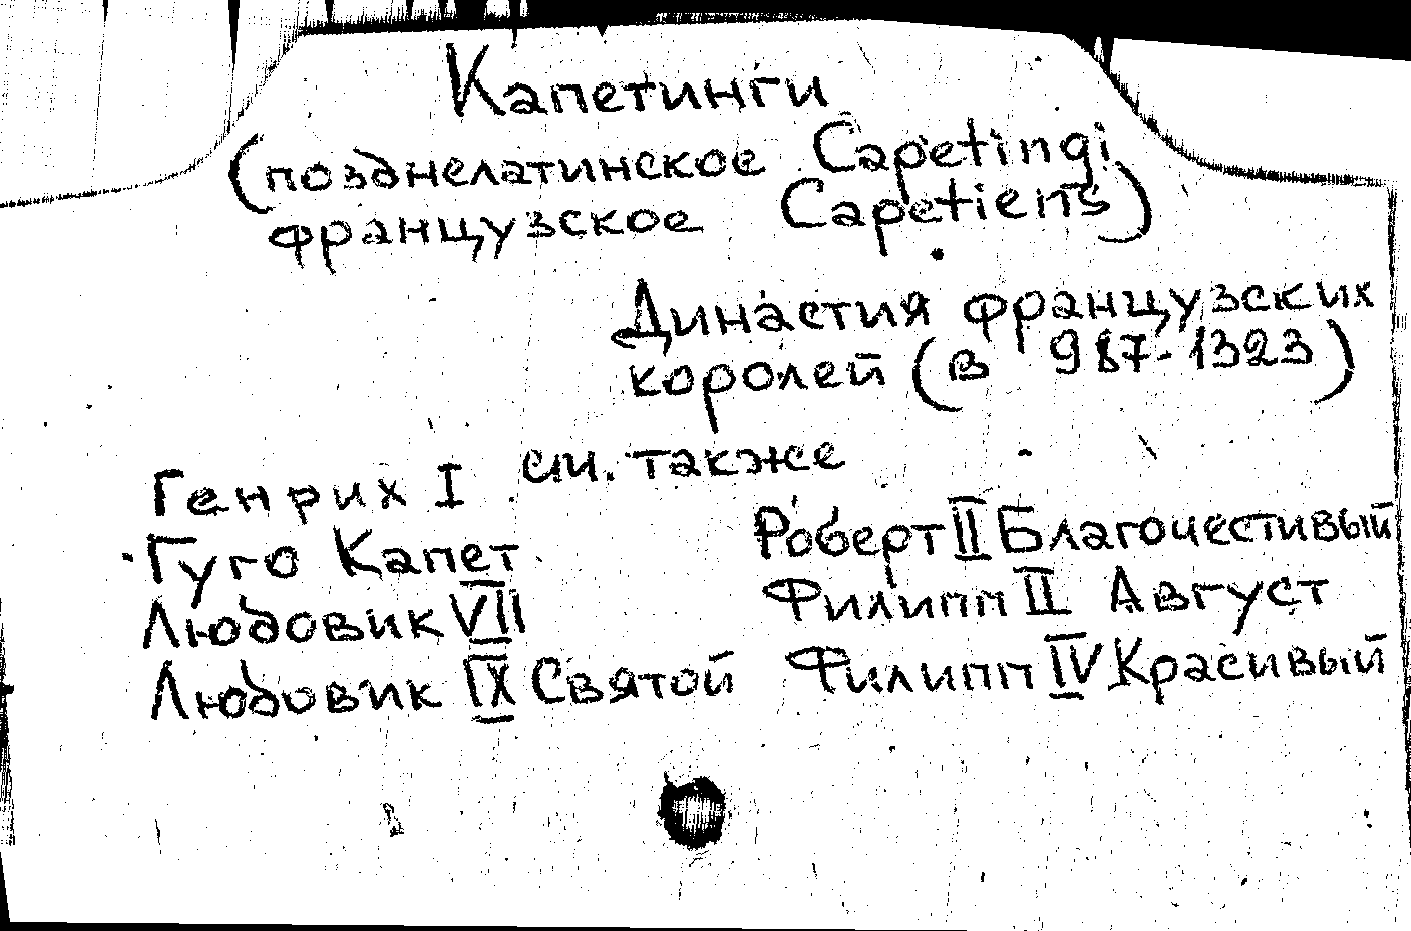 Капетинги
(позднелатинское Capetingi
французское Capetiens)
Династия французских
королей (в 987-1323)
см. также
Генрих I
Гуго Капет
Людовик VII
Людовик IX Святой
Роберт II Благочестивый
Филипп II Август
Филипп IV Красивый